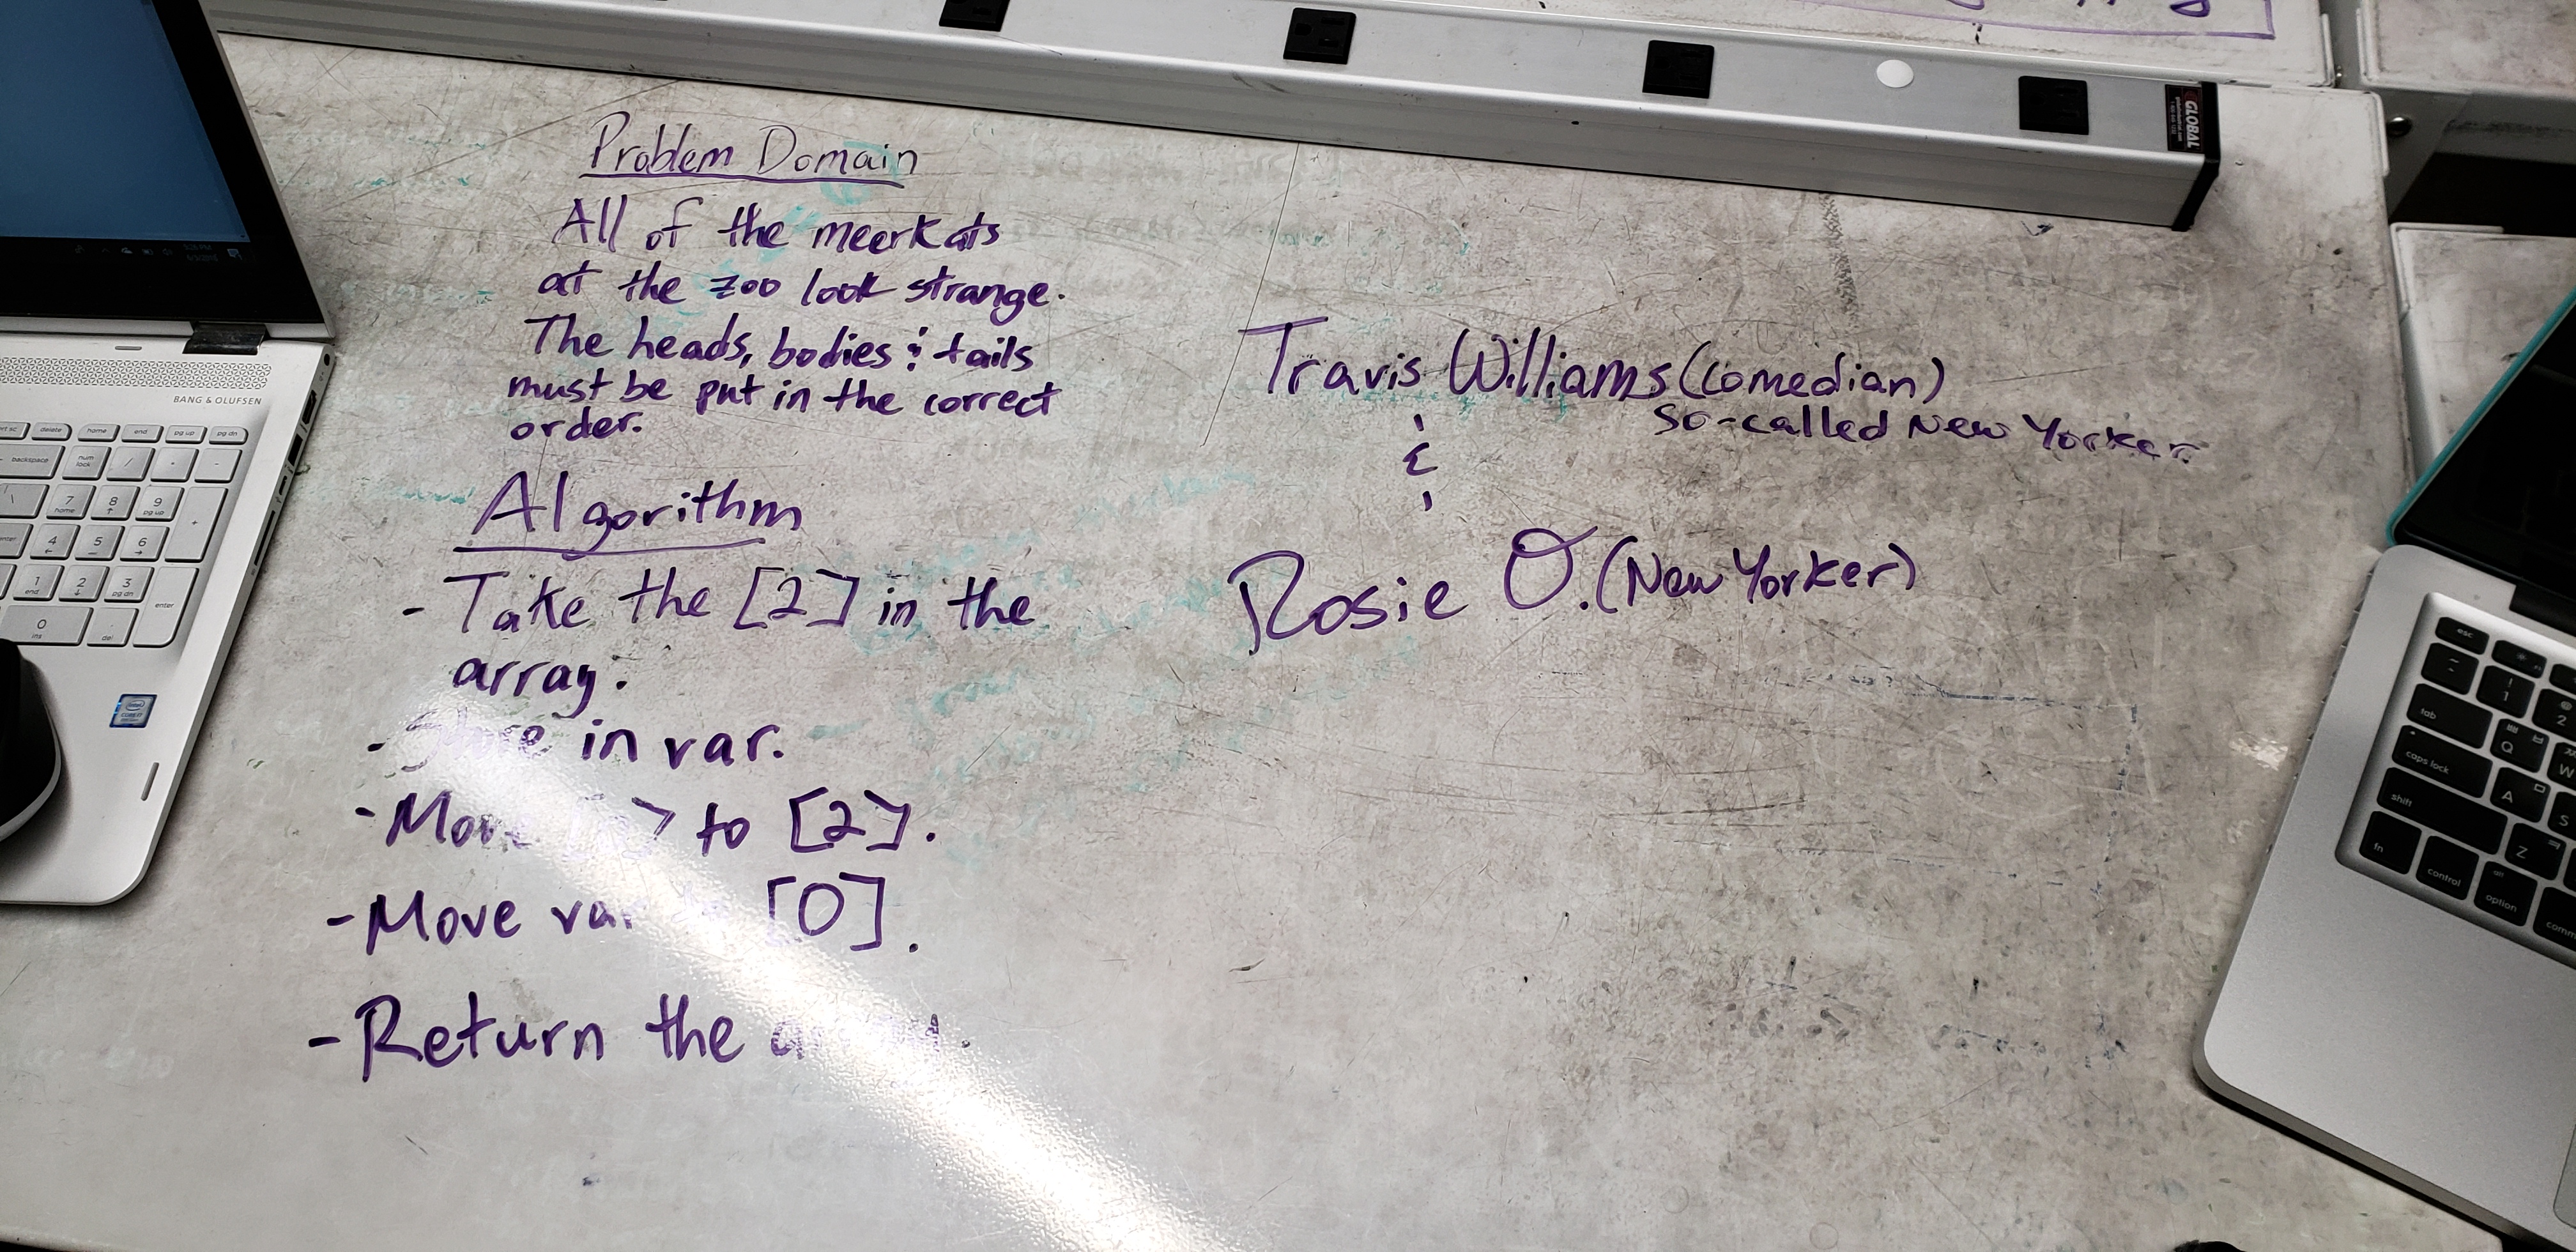 Problem Domain
All of the meerkats
at the zoo look strange.
The heads, bodies & tails
must be put in the correct
order.
Algorithm
- Take the [2] in the
array.
- Store in var.
- Move to [2].
- Move var to [0].
- Return the array.
Travis Williams (Comedian)
So-called New Yorker
&
Rosie O. (New Yorker)
GLOBAL
BANG & OLUFSEN
delete
home
end
pg up
pg dn
backspace
num
lock
/
*
-
7
home
8
9
pg up
+
4
5
6
1
end
2
3
pg dn
enter
0
ins
.
del
intel
esc
tab
caps lock
shift
fn
control
alt
option
Q
W
A
S
Z